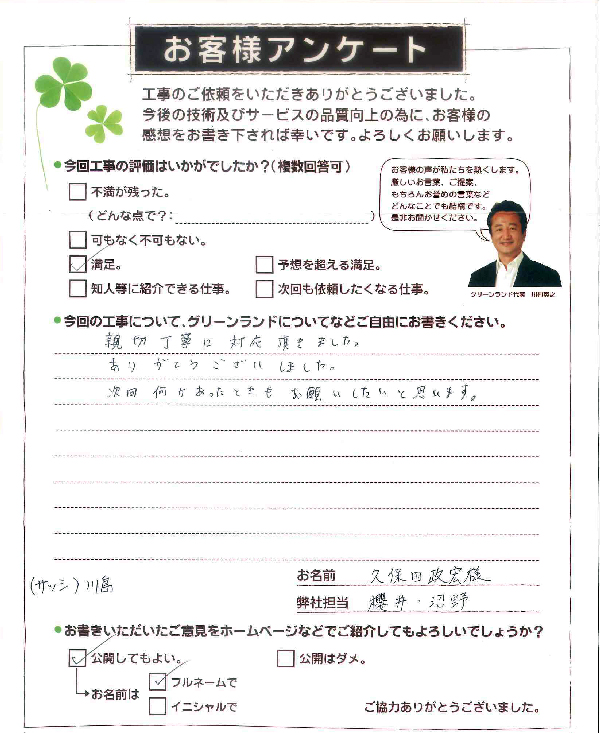 お客様アンケート
工事のご依頼をいただきありがとうございました。
今後の技術及びサービスの品質向上の為に、お客様の
感想をお書き下されば幸いです。よろしくお願いします。
今回工事の評価はいかがでしたか?(複数回答可)
お客様の声が私たちを熱くします。
厳しいお言葉、ご提案、
もちろんお褒めの言葉など
どんなことでも結構です。
是非お聞かせください。
不満が残った。
(どんな点で?: )
可もなく不可もない。
満足。 予想を超える満足。
知人等に紹介できる仕事。 次回も依頼したくなる仕事。
グリーンランド代表
今回の工事について、グリーンランドについてなどご自由にお書きください。
親切丁寧に対応頂きました。
ありがとうございました。
次回何かあったときもお願いしたいと思います。
(サッシ)川島
お名前 久保田政宏様
弊社担当 櫻井・沼野
お書きいただいたご意見をホームページなどでご紹介してもよろしいでしょうか?
公開してもよい。 公開はダメ。
お名前は フルネームで
イニシャルで
ご協力ありがとうございました。